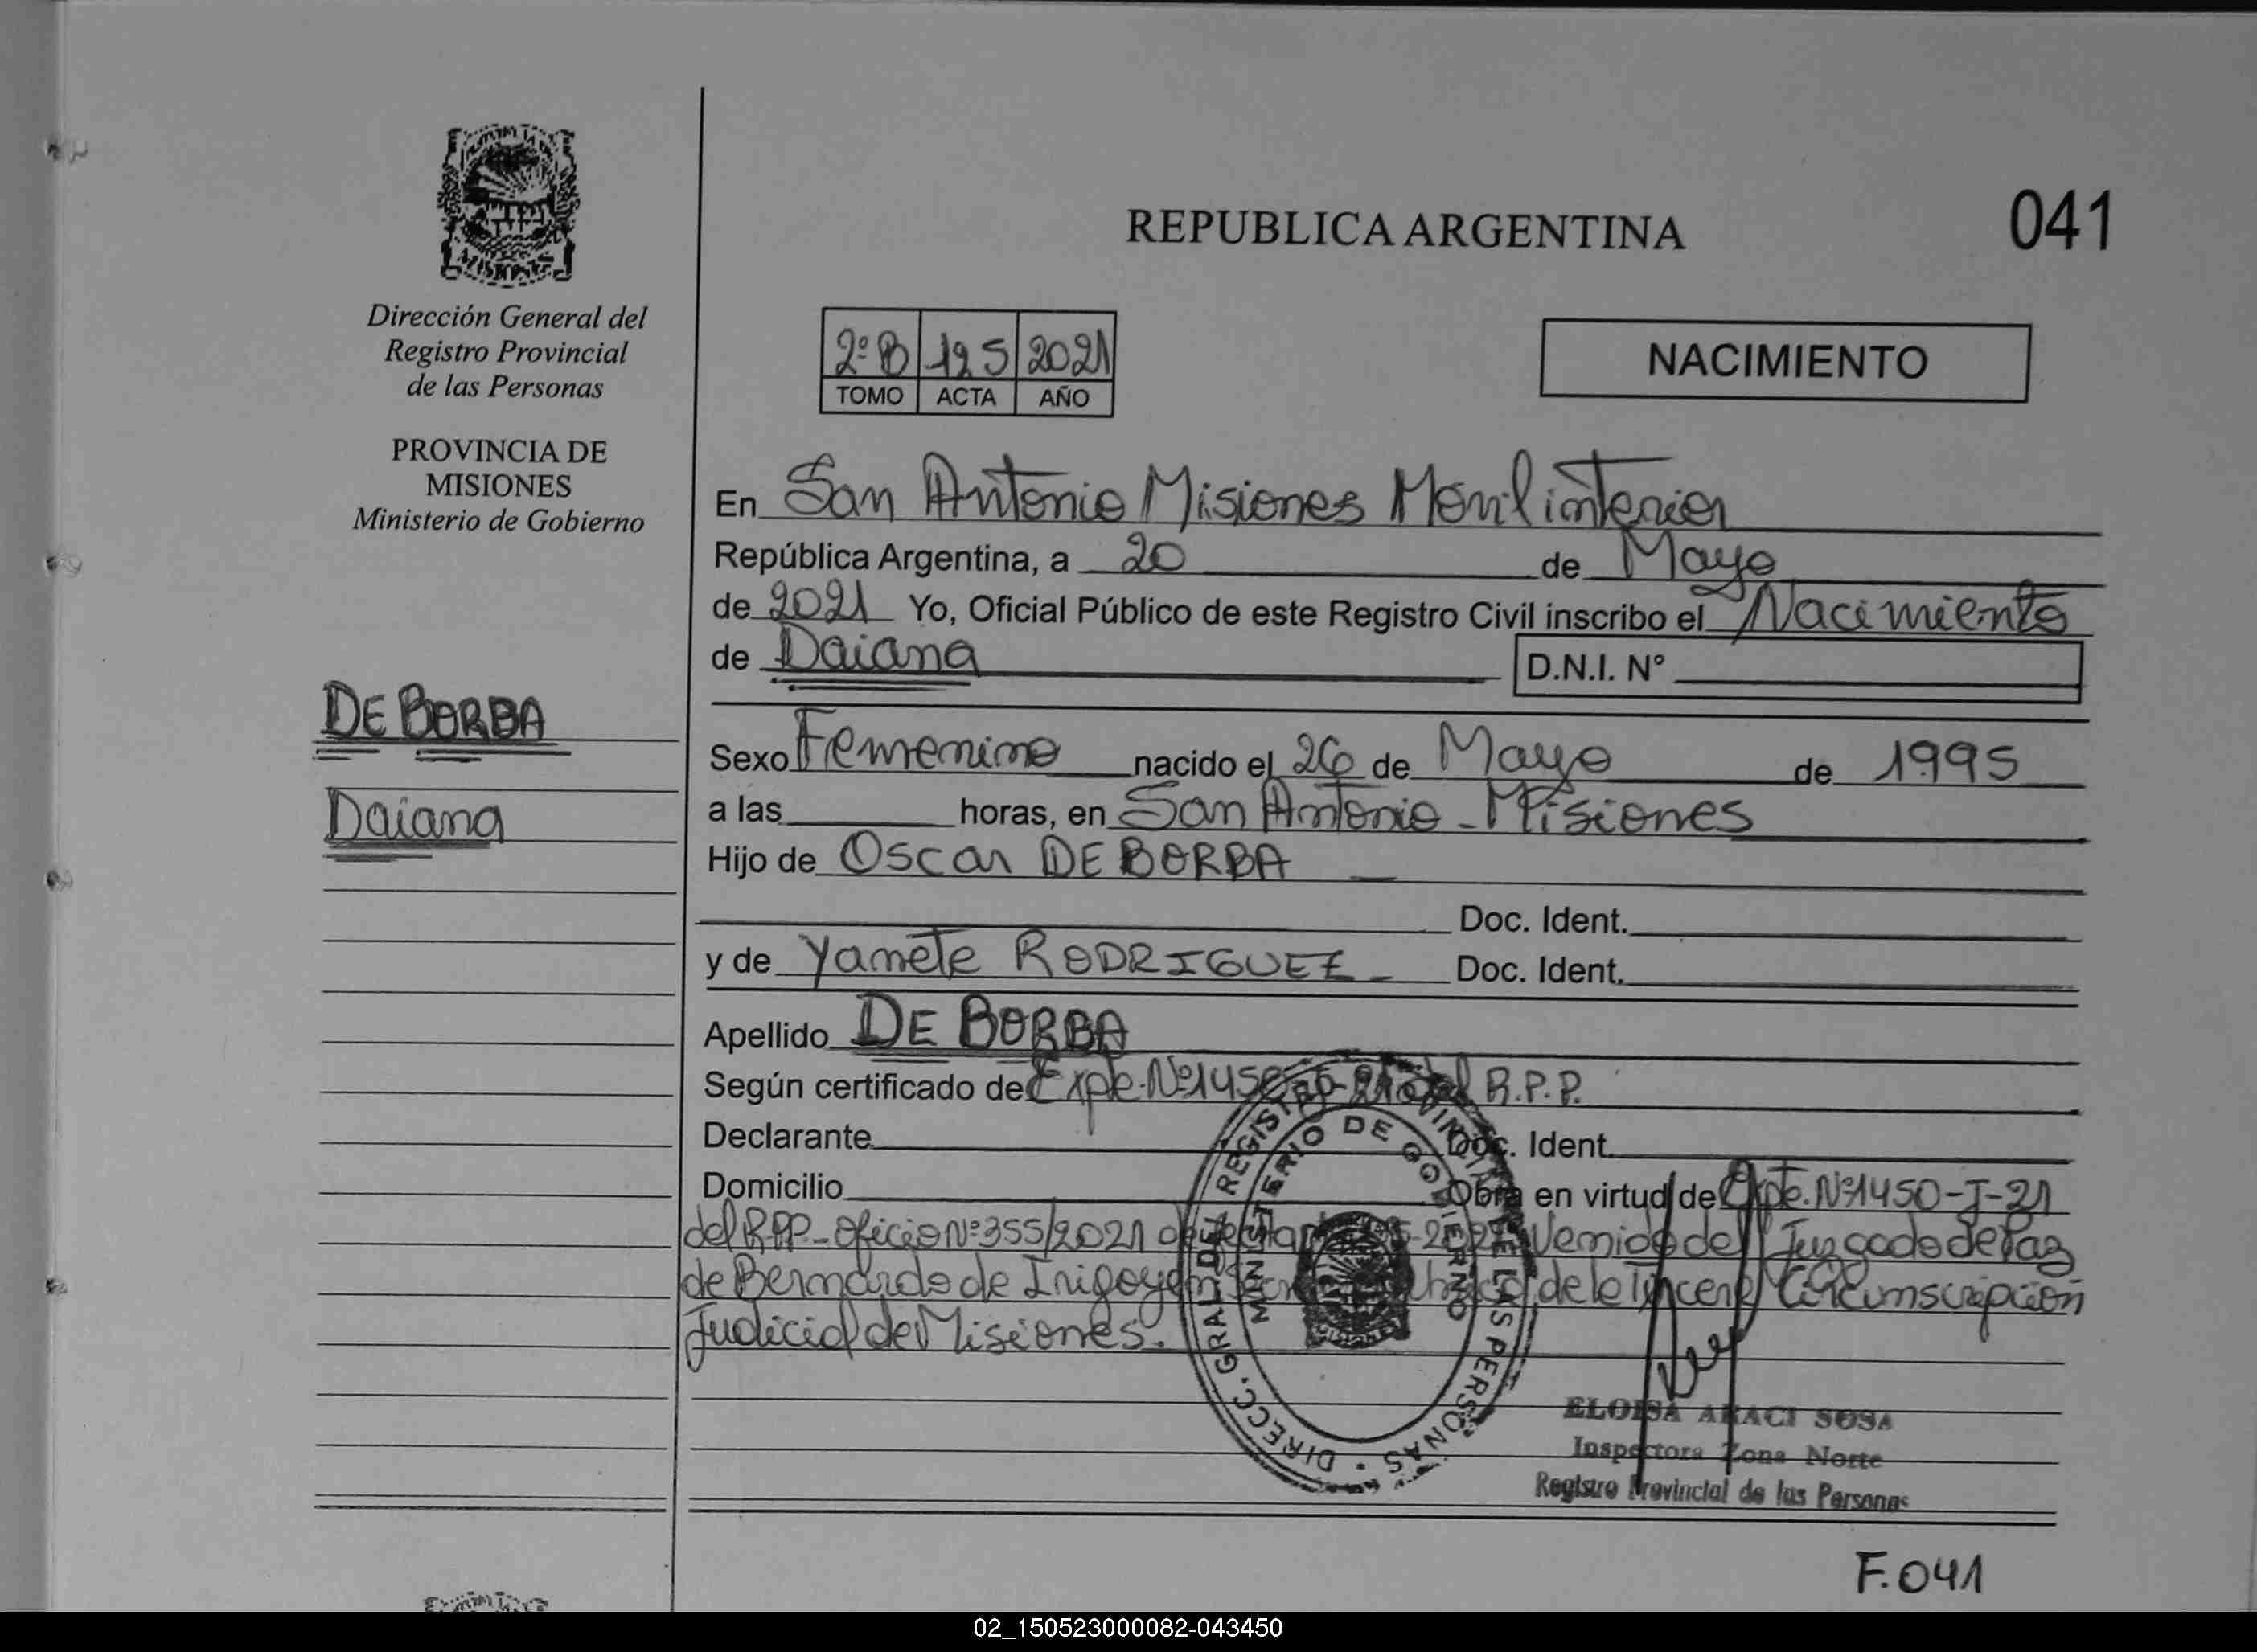 Dirección General del
Registro Provincial
de las Personas
PROVINCIA DE
MISIONES
Ministerio de Gobierno
DE BORBA
Daiana
REPUBLICA ARGENTINA
041
2º B 125 2021
TOMO ACTA AÑO
NACIMIENTO
En San Antonio Misiones Movil interior
República Argentina, a 20 de Mayo
de 2021 Yo, Oficial Público de este Registro Civil inscribo el Nacimiento
de Daiana D.N.I. Nº
Sexo Femenino nacido el 26 de Mayo de 1995
a las horas, en San Antonio - Misiones
Hijo de Oscar DE BORBA
Doc. Ident.
y de Yanete RODRIGUEZ - Doc. Ident.
Apellido DE BORBA
Según certificado de Expte. Nº 1450 R.P.P.
Declarante Doc. Ident.
Domicilio Obra en virtud de Expte. Nº 1450-J-21
del R.P.P. - Oficio Nº 355/2021 Venido del Juzgado de Paz
de Bernardo de Irigoyen de la Tercera Circunscripción
Judicial de Misiones.
DIRECC. GRAL. DEL REGISTRO PROVINCIAL DE LAS PERSONAS
MINISTERIO DE GOBIERNO
ELOISA ARACI SOSA
Inspectora Zona Norte
Registro Provincial de las Personas
F.041
02_150523000082-043450